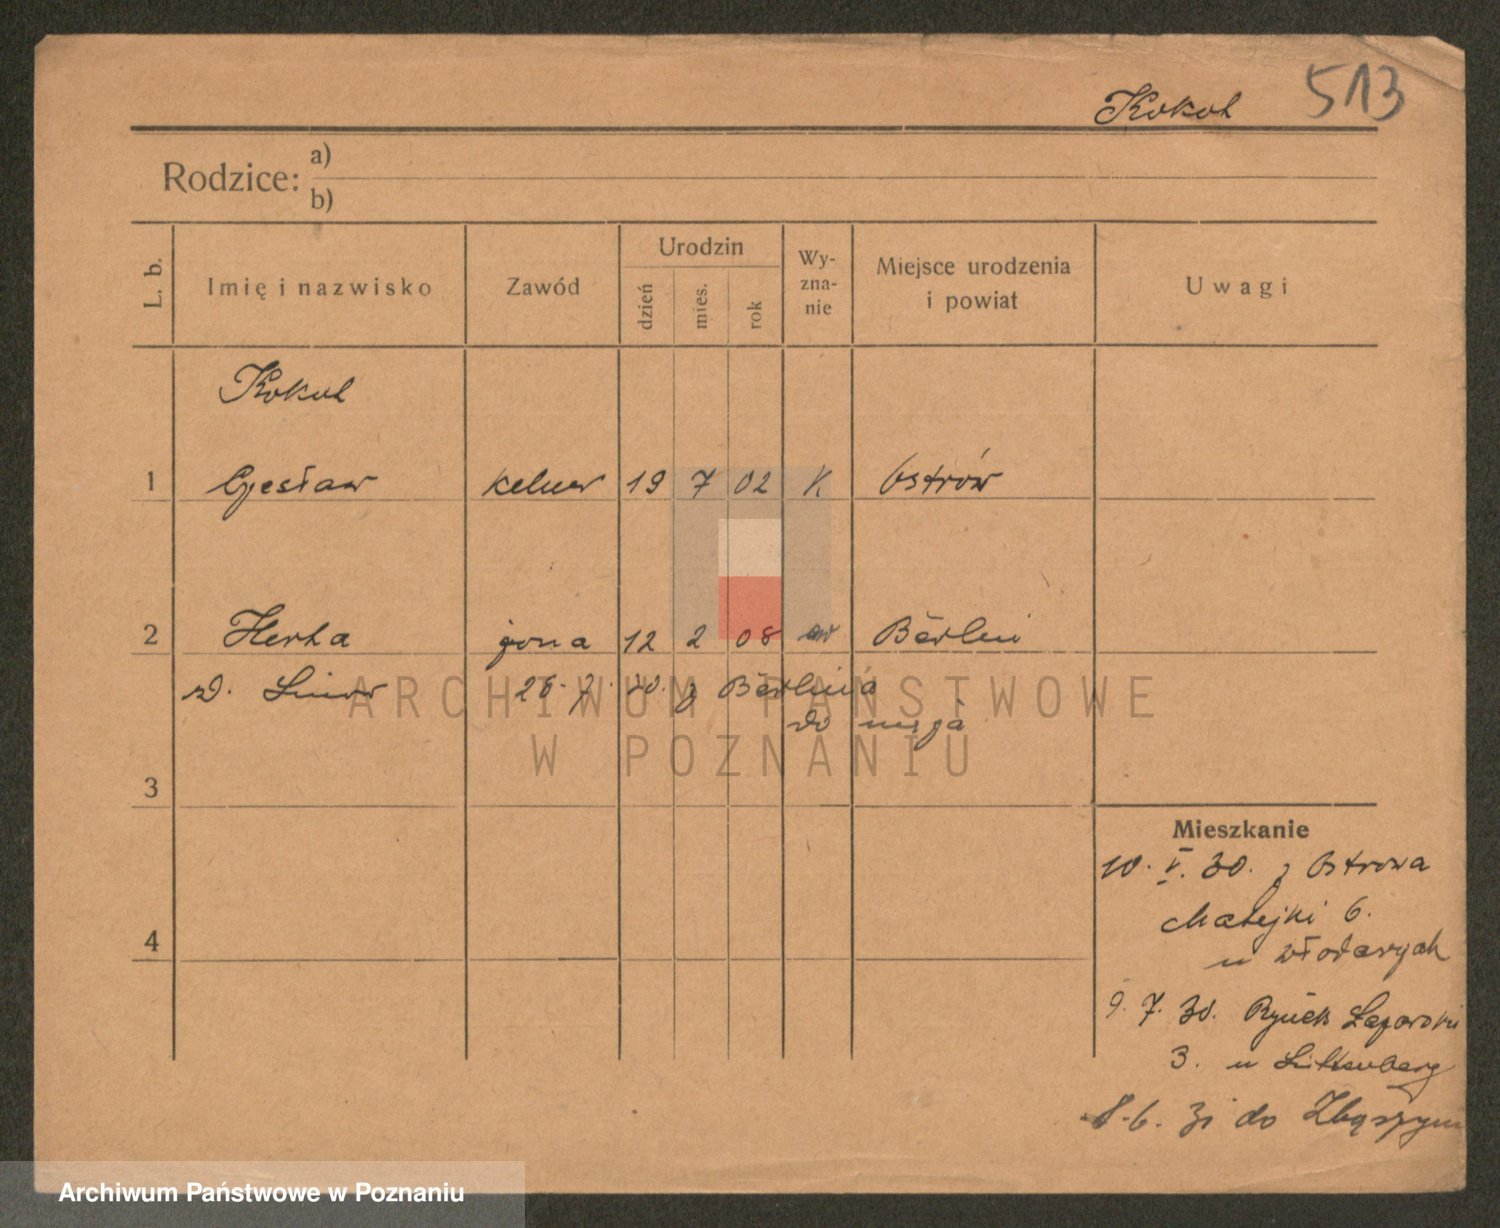 Kokot 513
Rodzice: a)
b)
L. b.
Imię i nazwisko
Zawód
Urodzin
dzień
mies.
rok
Wy-
zna-
nie
Miejsce urodzenia
i powiat
Uwagi
Kokot
1 Czesław kelner 19 7 02 K Ostrów
2 Herta żona 12 2 08 Berlin
26. 7. 30. z Berlina
do męża
3
4
Mieszkanie
10. V. 30. z Ostrowa
Matejki 6.
u Włodarzych
9. 7. 30. Rynek Łazarski
3. u
8. 6. 31 do Zbąszyni
ARCHIWUM PAŃSTWOWE
W POZNANIU
Archiwum Państwowe w Poznaniu